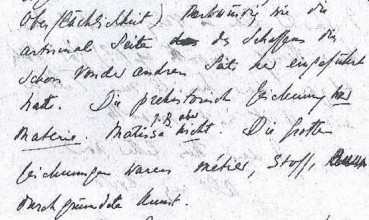 Oberflächlichkeit) Merkwürdig wie die
artisanal Seite des Schaffens die
schon von der andren Seite her eingeführt
hatte. Die prehistorisch Zeichnung war
materie. Matisse z.B. aber nicht. Die Grotten
Zeichnungen waren métier, Stoff,
durchgründete Kunst.